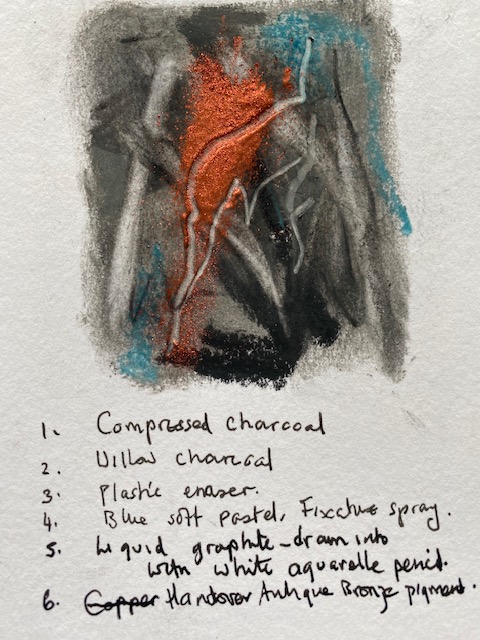 1. Compressed charcoal
2. Willow charcoal
3. Plastic eraser.
4. Blue soft pastel, Fixative spray.
5. Liquid graphite - drawn into
with white aquarelle pencil.
6. Copper Handover Antique Bronze pigment.